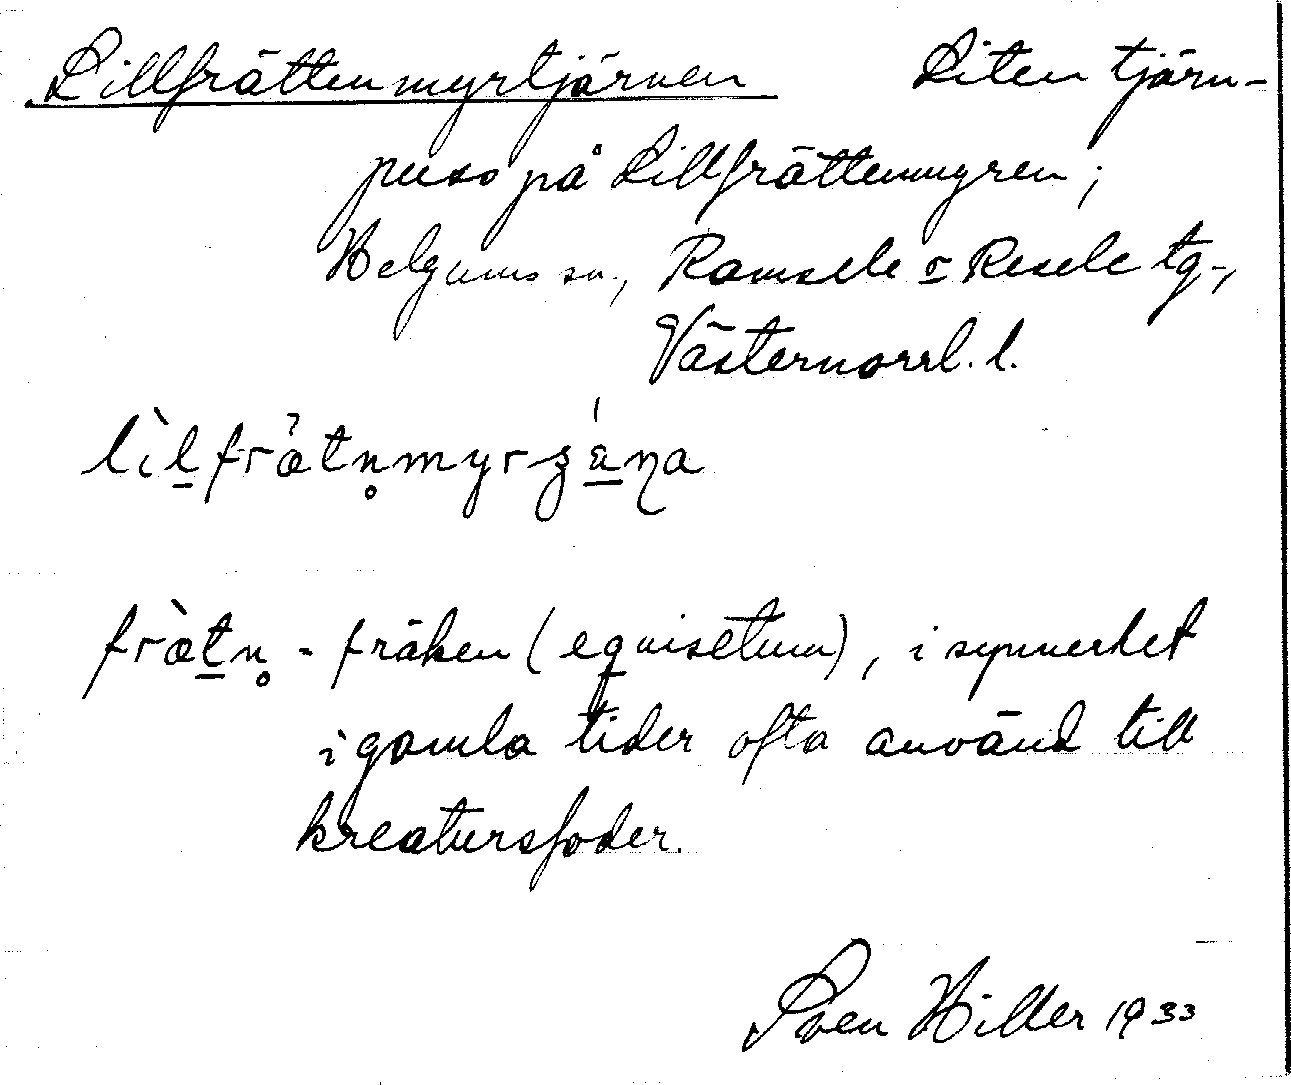 Lillfrättenmyrtjärnen Liten tjärn-
puso på Lillfrättenmyren;
Helgums sn., Ramsele o Resele tg.,
Västernorrl. l.
frætn̥ - fräken (equisetum), i synnerhet
i gamla tider ofta använd till
kreatursfoder.
Sven Hiller 1933